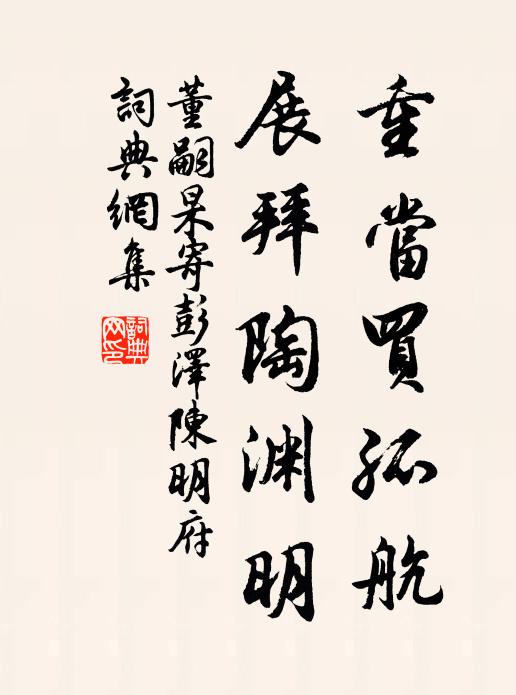 重當買孤航
展拜陶渊明
董嗣杲寄彭澤陳明府
詞典網集
詞典
网印